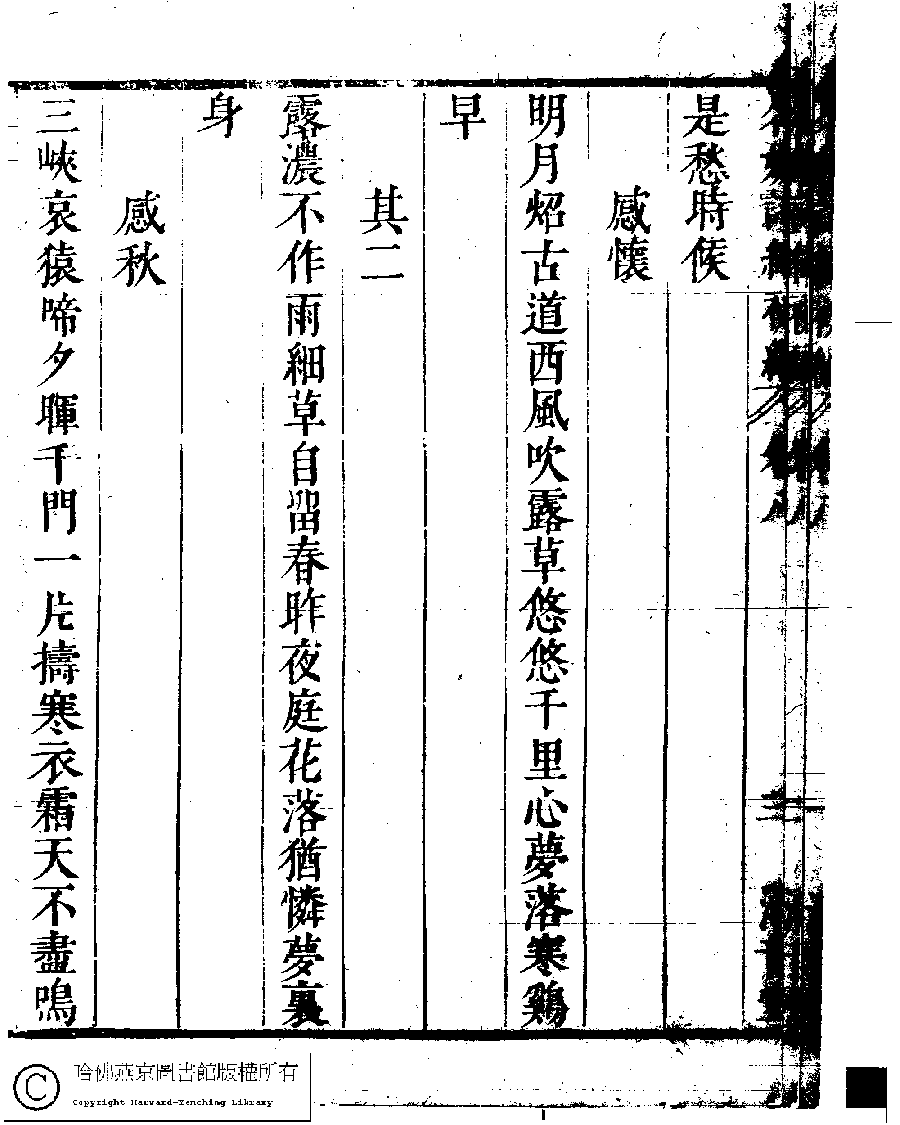 是愁時候
感懷
明月炤古道西風吹露草悠悠千里心夢落寒鷄
早
其二
露濃不作雨細草自留春昨夜庭花落猶憐夢裏
身
感秋
三峽哀猿啼夕暉千門一片擣寒衣霜天不盡鳴
哈佛燕京圖書館版權所有
Copyright Harvard-Yenching Library